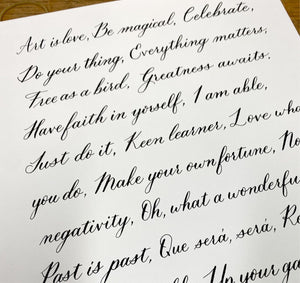 Art is love, Be magical, Celebrate,
Do your thing, Everything matters,
Free as a bird, Greatness awaits,
Have faith in yorself, I am able,
Just do it, Keen learner, Love wha
you do, Make your own fortune, No
negativity, Oh, what a wonderfu
Past is past, Que será, será, Re
Up your ga